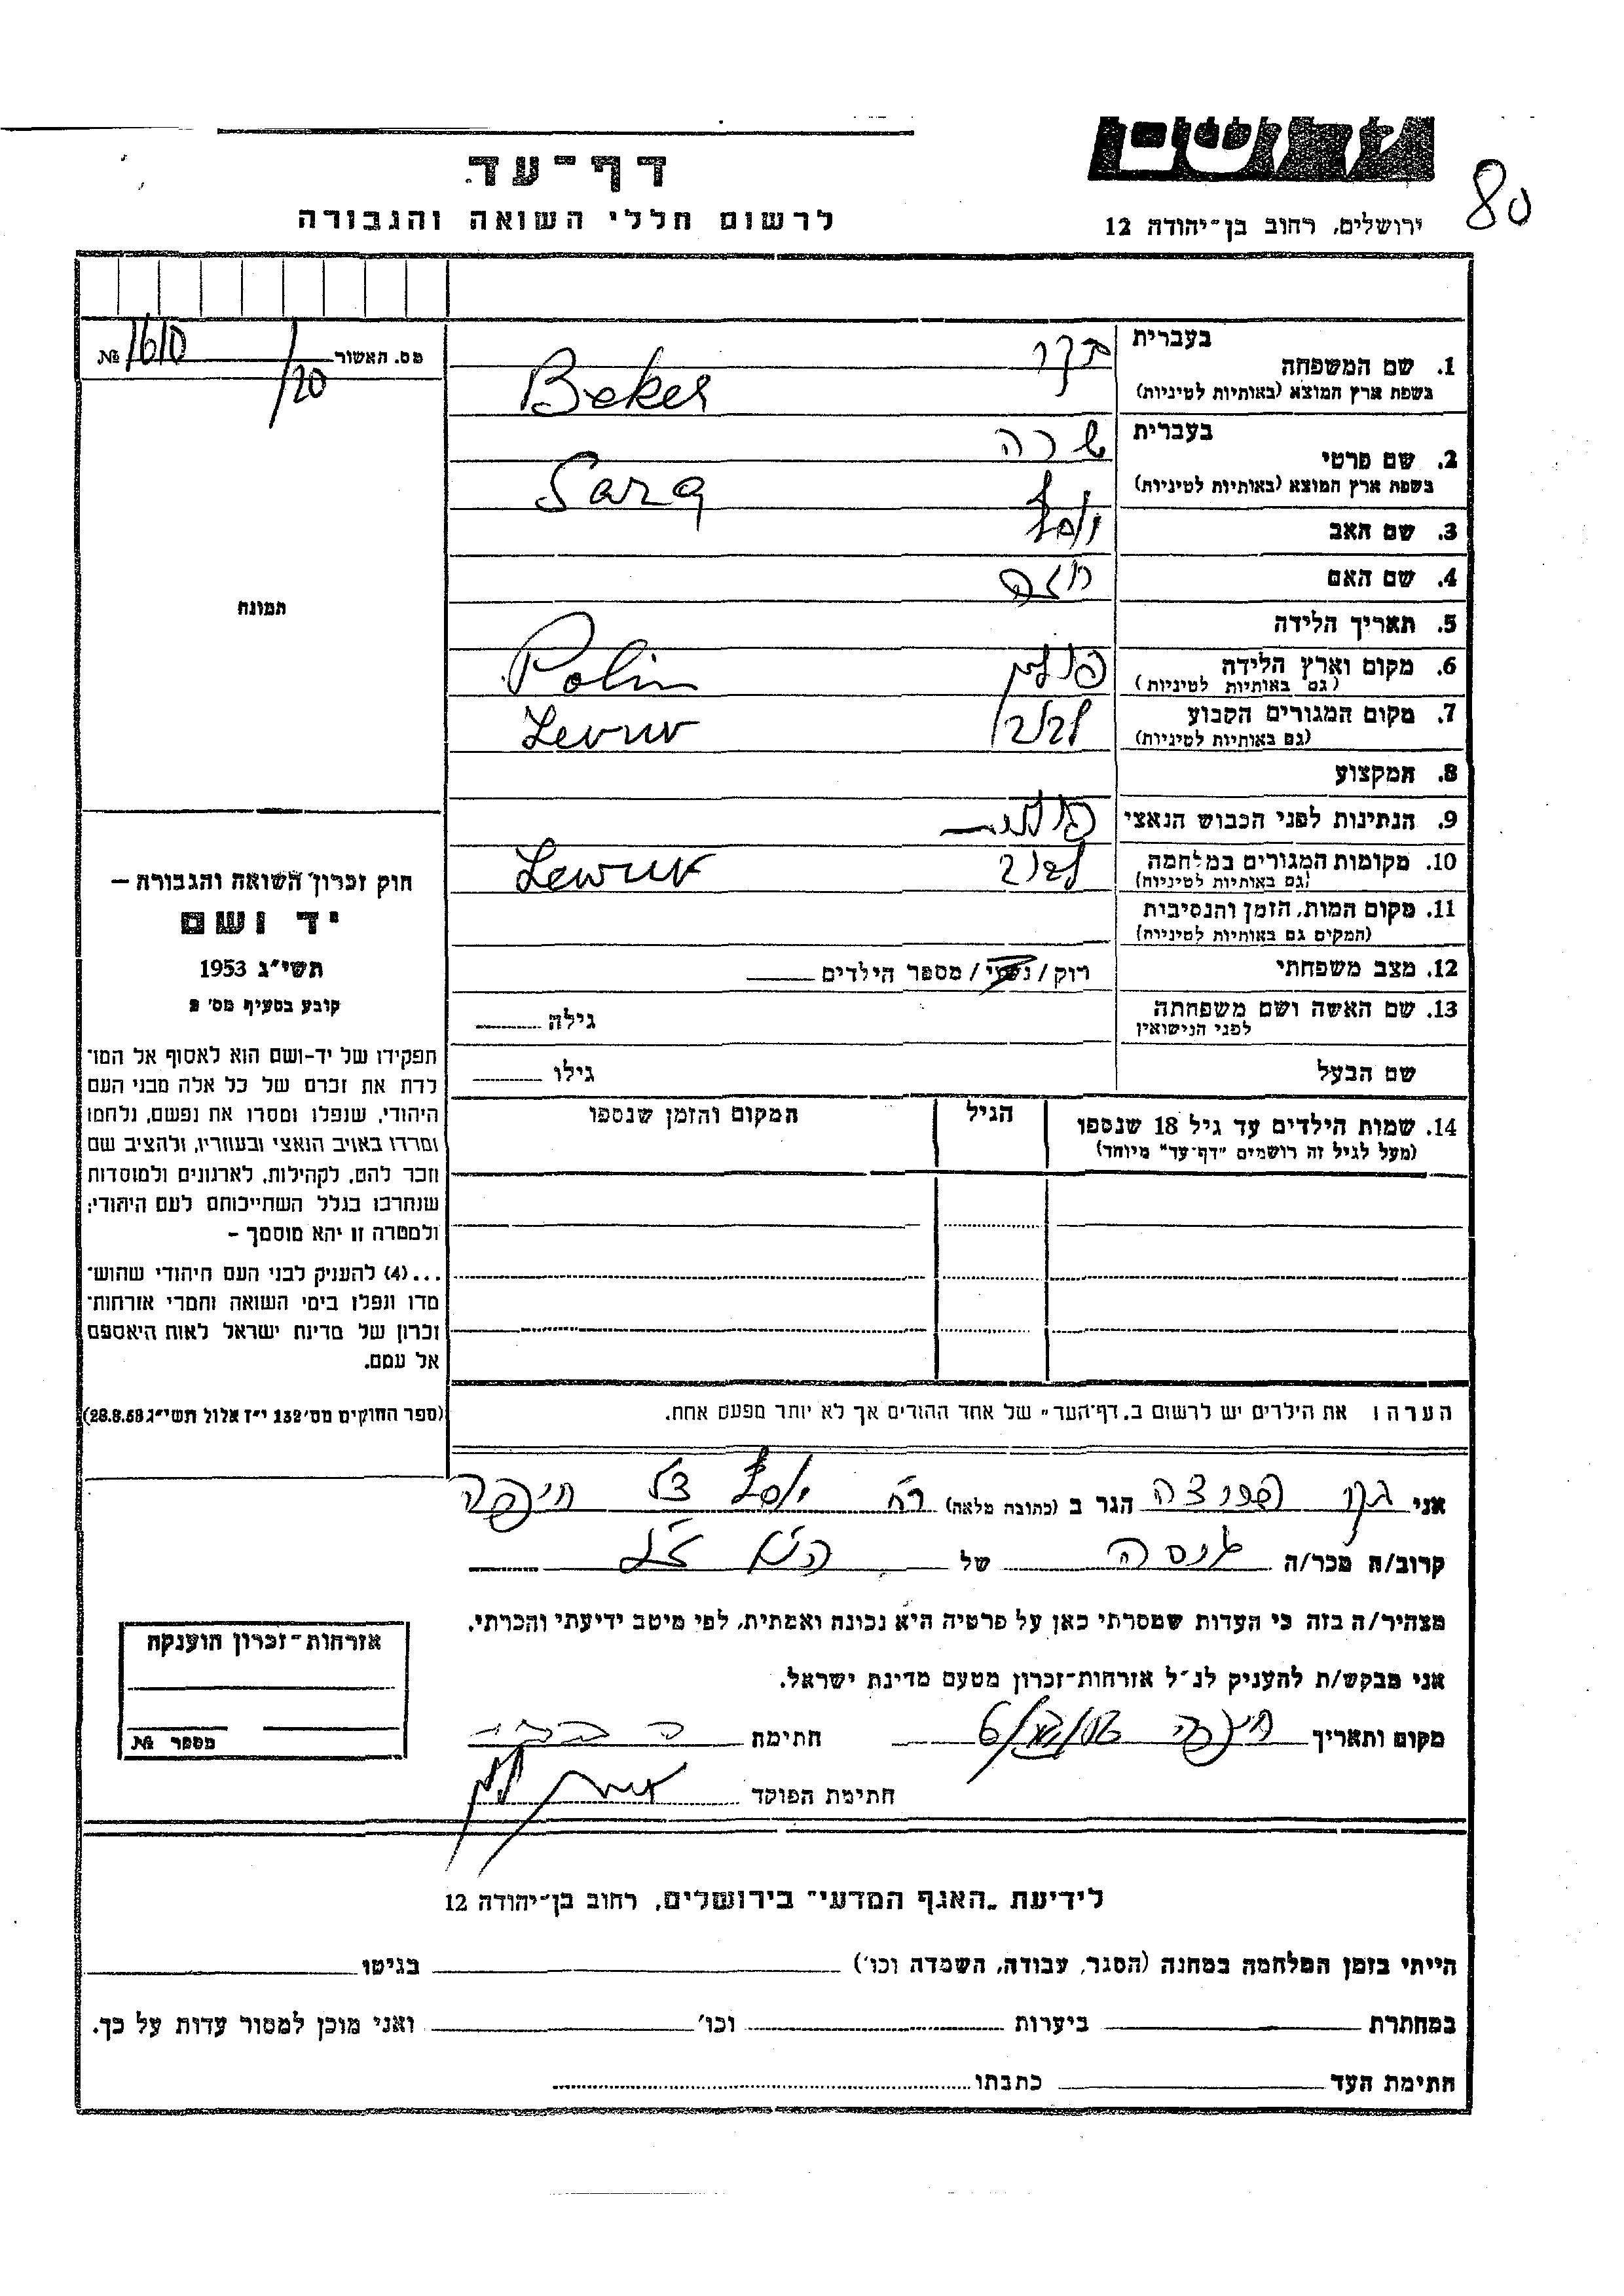 דף-עד
80
לרשום חללי השואה והגבורה
ירושלים, רחוב בן-יהודה 12
מס. האשור 1610/20 №
1. שם המשפחה
בעברית בקר
בשפת ארץ המוצא (באותיות לטיניות) Beker
2. שם פרטי
בעברית שרה
בשפת ארץ המוצא (באותיות לטיניות) Sara
3. שם האב יוסף
4. שם האם
5. תאריך הלידה
6. מקום וארץ הלידה פולין Polin
(גם באותיות לטיניות)
7. מקום המגורים הקבוע
(גם באותיות לטיניות)
8. המקצוע
9. הנתינות לפני הכבוש הנאצי פולני
10. מקומות המגורים במלחמה
(גם באותיות לטיניות)
11. מקום המות, הזמן והנסיבות
(המקום גם באותיות לטיניות)
12. מצב משפחתי רוק/נשוי/מספר הילדים
13. שם האשה ושם משפחתה גילה
לפני הנישואין
שם הבעל גילו
14. שמות הילדים עד גיל 18 שנספו הגיל המקום והזמן שנספו
(מעל לגיל זה רושמים "דף-עד" מיוחד)
הערה: את הילדים יש לרשום ב„דף-העד" של אחד ההורים אך לא יותר מפעם אחת.
תמונה
חוק זכרון השואה והגבורה –
יד ושם
תשי"ג 1953
קובע בסעיף מס' 2
תפקידו של יד-ושם הוא לאסוף אל המו-
לדת את זכרם של כל אלה מבני העם
היהודי, שנפלו ומסרו את נפשם, נלחמו
ומרדו באויב הנאצי ובעוזריו, ולהציב שם
וזכר להם, לקהילות, לארגונים ולמוסדות
שנחרבו בגלל השתייכותם לעם היהודי;
ולמטרה זו יהא מוסמך –
...(4) להעניק לבני העם היהודי שהוש-
מדו ונפלו בימי השואה והמרי אזרחות-
זכרון של מדינת ישראל לאות היאספם
אל עמם.
(ספר החוקים מס' 132 י"ז אלול תשי"ג 28.8.53)
אני בקר הגר ב (כתובת מלאה) רח חיפה
קרוב/ה מכר/ה גיסה של
מצהיר/ה בזה כי העדות שמסרתי כאן על פרטיה היא נכונה ואמתית, לפי מיטב ידיעתי והכרתי.
אני מבקש/ת להעניק לנ"ל אזרחות-זכרון מטעם מדינת ישראל.
מקום ותאריך חיפה חתימה
חתימת הפוקד
אזרחות-זכרון הוענקה
מספר №
לידיעת „האגף המדעי" בירושלים, רחוב בן-יהודה 12
הייתי בזמן המלחמה במחנה (הסגר, עבודה, השמדה וכו') בגיטו
במחתרת ביערות וכו' ואני מוכן למסור עדות על כך.
חתימת העד כתבתו